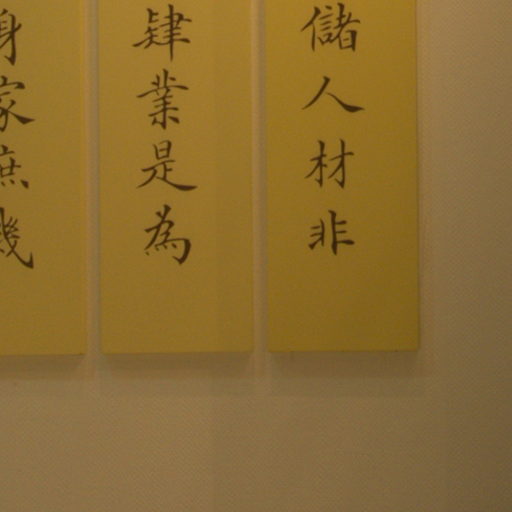 儲人材非
肄業是為
身家庶幾